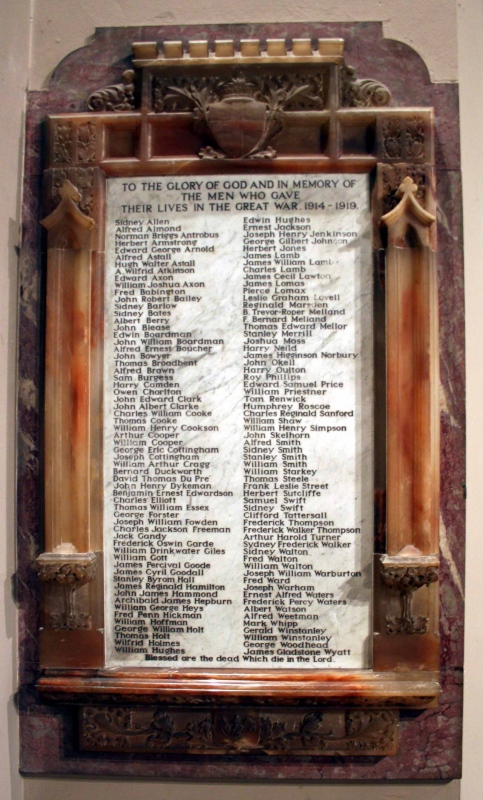 TO THE GLORY OF GOD AND IN MEMORY OF
THE MEN WHO GAVE
THEIR LIVES IN THE GREAT WAR. 1914 - 1919.
Sidney Allen
Alfred Almond
Norman Briggs Antrobus
Herbert Armstrong
Edward George Arnold
Alfred Astall
Hugh Walter Astall
A. Wilfrid Atkinson
Edward Axon
William Joshua Axon
Fred Babington
John Robert Bailey
Sidney Barlow
Sidney Bates
Albert Berry
John Blease
Edwin Boardman
John William Boardman
Alfred Ernest Boucher
John Bowyer
Thomas Broadbent
Alfred Brown
Sam Burgess
Harry Camden
Owen Charlton
John Edward Clark
John Albert Clarke
Charles William Cooke
Thomas Cooke
William Henry Cookson
Arthur Cooper
William Cooper
George Eric Cottingham
Joseph Cottingham
William Arthur Cragg
Bernard Duckworth
David Thomas Du Pre
John Henry Dykeman
Benjamin Ernest Edwardson
Charles Elliott
Thomas William Essex
George Forster
Joseph William Fowden
Charles Jackson Freeman
Jack Gandy
Frederick Oswin Garde
William Drinkwater Giles
William Gott
James Percival Goode
James Cyril Goodall
Stanley Byrom Hall
James Reginald Hamilton
John James Hammond
Archibald James Hepburn
William George Heys
Fred Penn Hickman
William Hoffman
George William Holt
Thomas Holt
Wilfrid Holmes
William Hughes
Edwin Hughes
Ernest Jackson
Joseph Henry Jenkinson
George Gilbert Johnson
Herbert Jones
James Lamb
James William Lamb
Charles Lamb
James Cecil Lawton
James Lomas
Pierce Lomax
Leslie Graham Lovell
Reginald Marsden
B. Trevor-Roper Melland
F. Bernard Melland
Thomas Edward Mellor
Stanley Merrill
Joshua Moss
Harry Neild
James Higginson Norbury
John Okell
Harry Oulton
Roy Phillips
Edward Samuel Price
William Priestner
Tom Renwick
Humphrey Roscoe
Charles Reginald Sanford
William Shaw
William Henry Simpson
John Skelhorn
Alfred Smith
Sidney Smith
Stanley Smith
William Smith
William Starkey
Thomas Steele
Frank Leslie Street
Herbert Sutcliffe
Samuel Swift
Sidney Swift
Clifford Tattersall
Frederick Thompson
Frederick Walker Thompson
Arthur Harold Turner
Sydney Frederick Walker
Sidney Walton
Fred Walton
William Walton
Joseph William Warburton
Fred Ward
Joseph Warham
Ernest Alfred Waters
Frederick Percy Waters
Albert Watson
Alfred Weetman
Mark Whipp
Gerald Winstanley
William Winstanley
George Woodhead
James Gladstone Wyatt
Blessed are the dead Which die in the Lord.